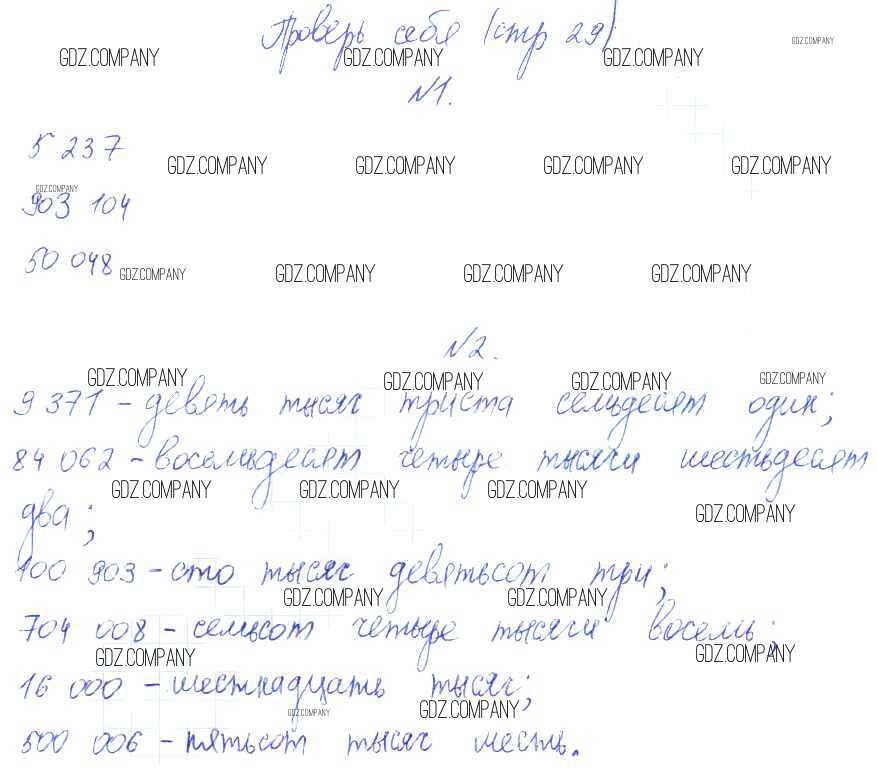 Проверь себя (стр 29)
GDZ.COMPANY GDZ.COMPANY GDZ.COMPANY GDZ.COMPANY
№1.
5 237
GDZ.COMPANY GDZ.COMPANY GDZ.COMPANY GDZ.COMPANY
GDZ.COMPANY
903 104
50 048
GDZ.COMPANY GDZ.COMPANY GDZ.COMPANY GDZ.COMPANY
№2.
GDZ.COMPANY GDZ.COMPANY GDZ.COMPANY GDZ.COMPANY
9 371 – девять тысяч триста семьдесят один;
84 062 – восемьдесят четыре тысячи шестьдесят
GDZ.COMPANY GDZ.COMPANY GDZ.COMPANY GDZ.COMPANY
два;
100 903 – сто тысяч девятьсот три;
GDZ.COMPANY GDZ.COMPANY
704 008 – семьсот четыре тысячи восемь;
GDZ.COMPANY GDZ.COMPANY
16 000 – шестнадцать тысяч;
GDZ.COMPANY GDZ.COMPANY
500 006 – пятьсот тысяч шесть.